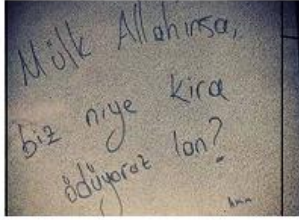 Mülk Allahınsa,
biz niye kira
ödüyoruz lan?